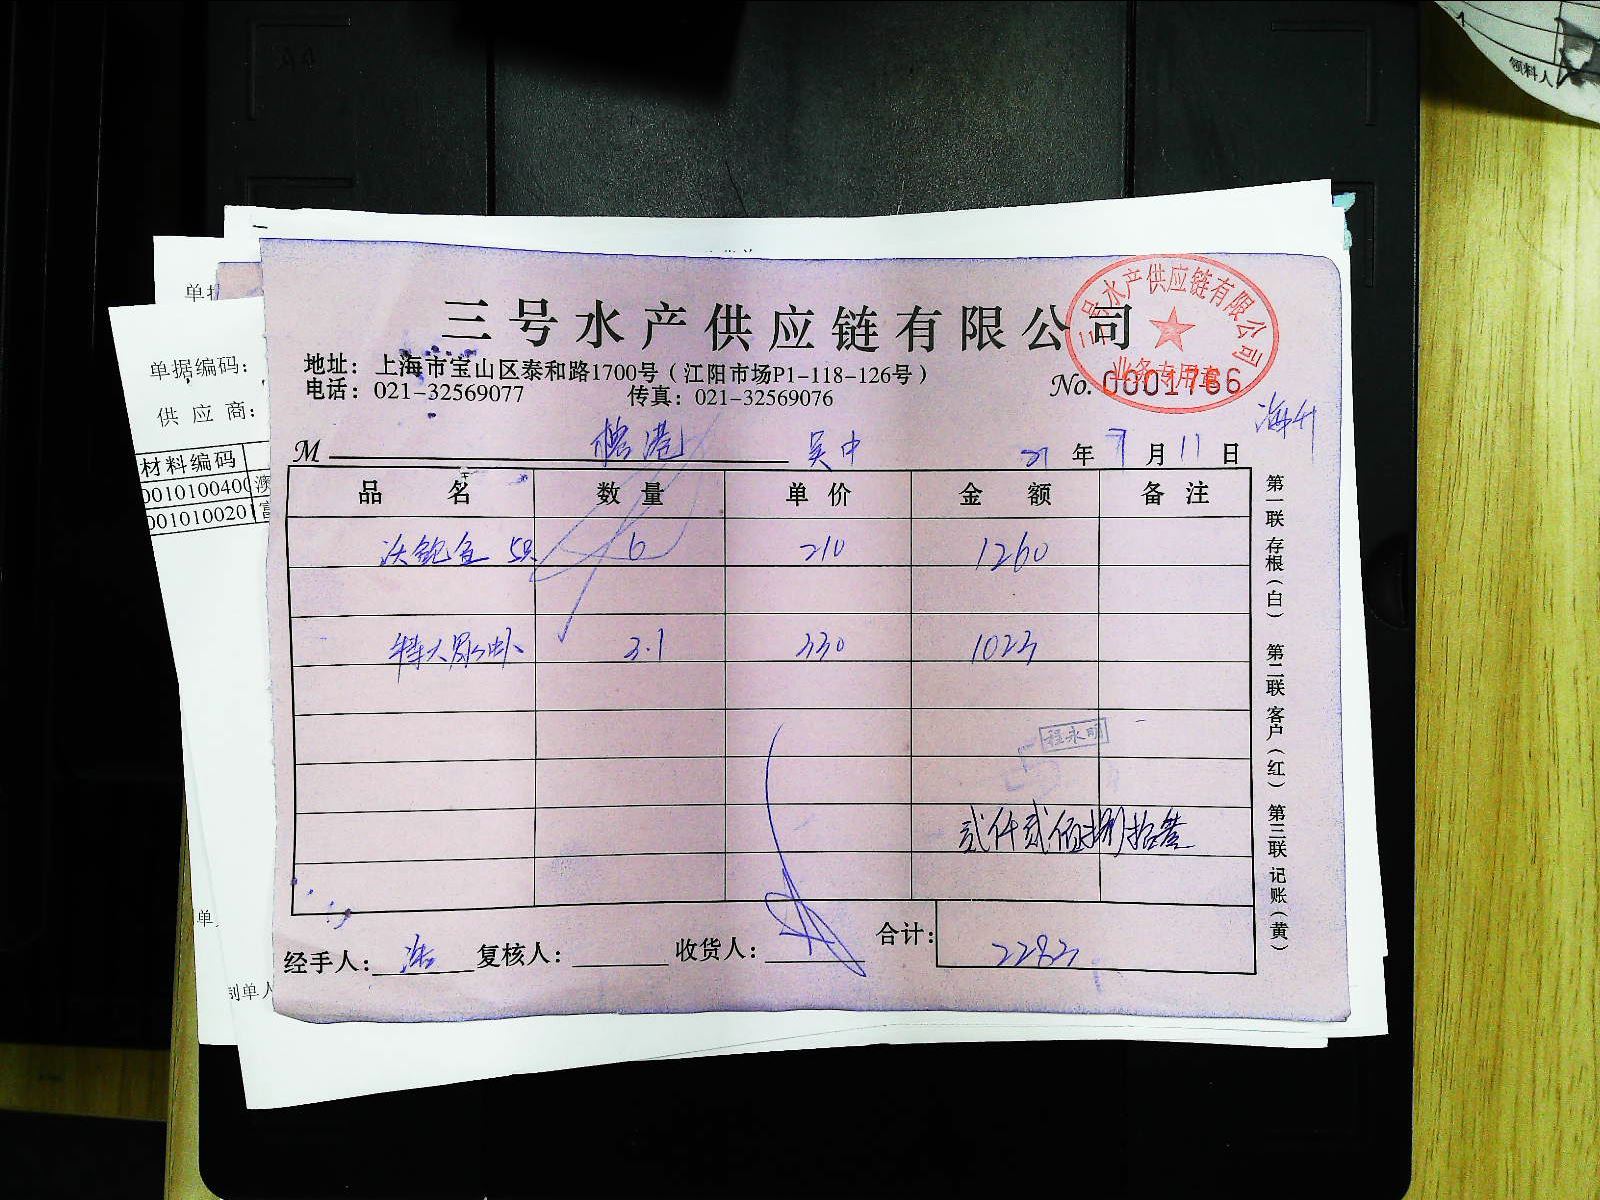 领料人
单据编码：
供 应 商：
材料编码
001010040
001010020
制单人
三号水产供应链有限公司
三号水产供应链有限公司
业务专用章
地址：上海市宝山区泰和路1700号（江阳市场P1-118-126号）
电话：021-32569077 传真：021-32569076
No. 0001786
M 吴中 21 年 7 月 11 日
品 名 数 量 单 价 金 额 备 注
沃鲍鱼 5只 6 210 1260
特大 3.1 330 1023
程永明
贰仟贰佰捌拾叁
经手人： 复核人： 收货人： 合计： 2283
第一联 存根（白） 第二联 客户（红） 第三联 记账（黄）